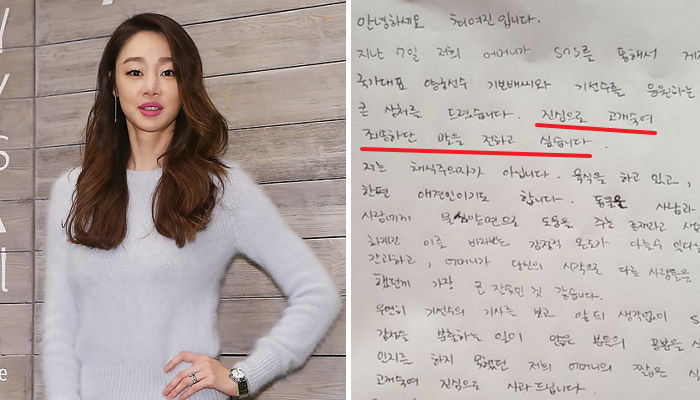 안녕하세요 최여진입니다.
지난 7일 저희 어머니가 SNS를 통해서
국가대표 양궁선수 기보배씨와 기선수를 응원하는
큰 상처를 드렸습니다. 진심으로 고개숙여
죄송하단 말을 전하고 싶습니다.
저는 채식주의자가 아닙니다. 육식을 하고 있고,
한편 애견인이기도 합니다. 동물은 사람과
사람에게 물심양면으로 도움을 주는 존재라고
하지만 이를 바라보는 감정적 온도가 다를수 있다는
간과하고, 어머니가 당신의 시각으로 다른 사람들을
했던게 가장 큰 잘못인 것 같습니다.
우연히 기선수의 기사를 보고 앞뒤 생각없이 S
감정을 분출하는 일이 많은 분들의 공분을
인지조차 하지 못했던 저희 어머니의 짧은
고개숙여 진심으로 사과 드립니다.